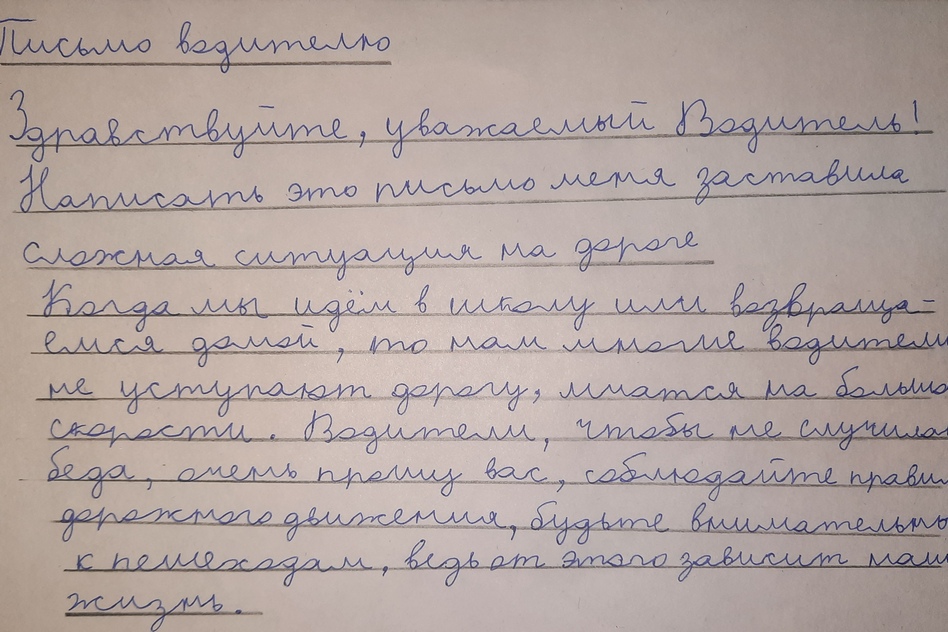 Письмо водителю
Здравствуйте, уважаемый Водитель!
Написать это письмо меня заставила
сложная ситуация на дороге
Когда мы идём в школу или возвраща=
емся домой, то нам многие водители
не уступают дорогу, мчатся на большо
скорости. Водители, чтобы не случилас
беда, очень прошу вас, соблюдайте правил
дорожного движения, будьте внимательны
к пешеходам, ведь от этого зависит наш
жизнь.